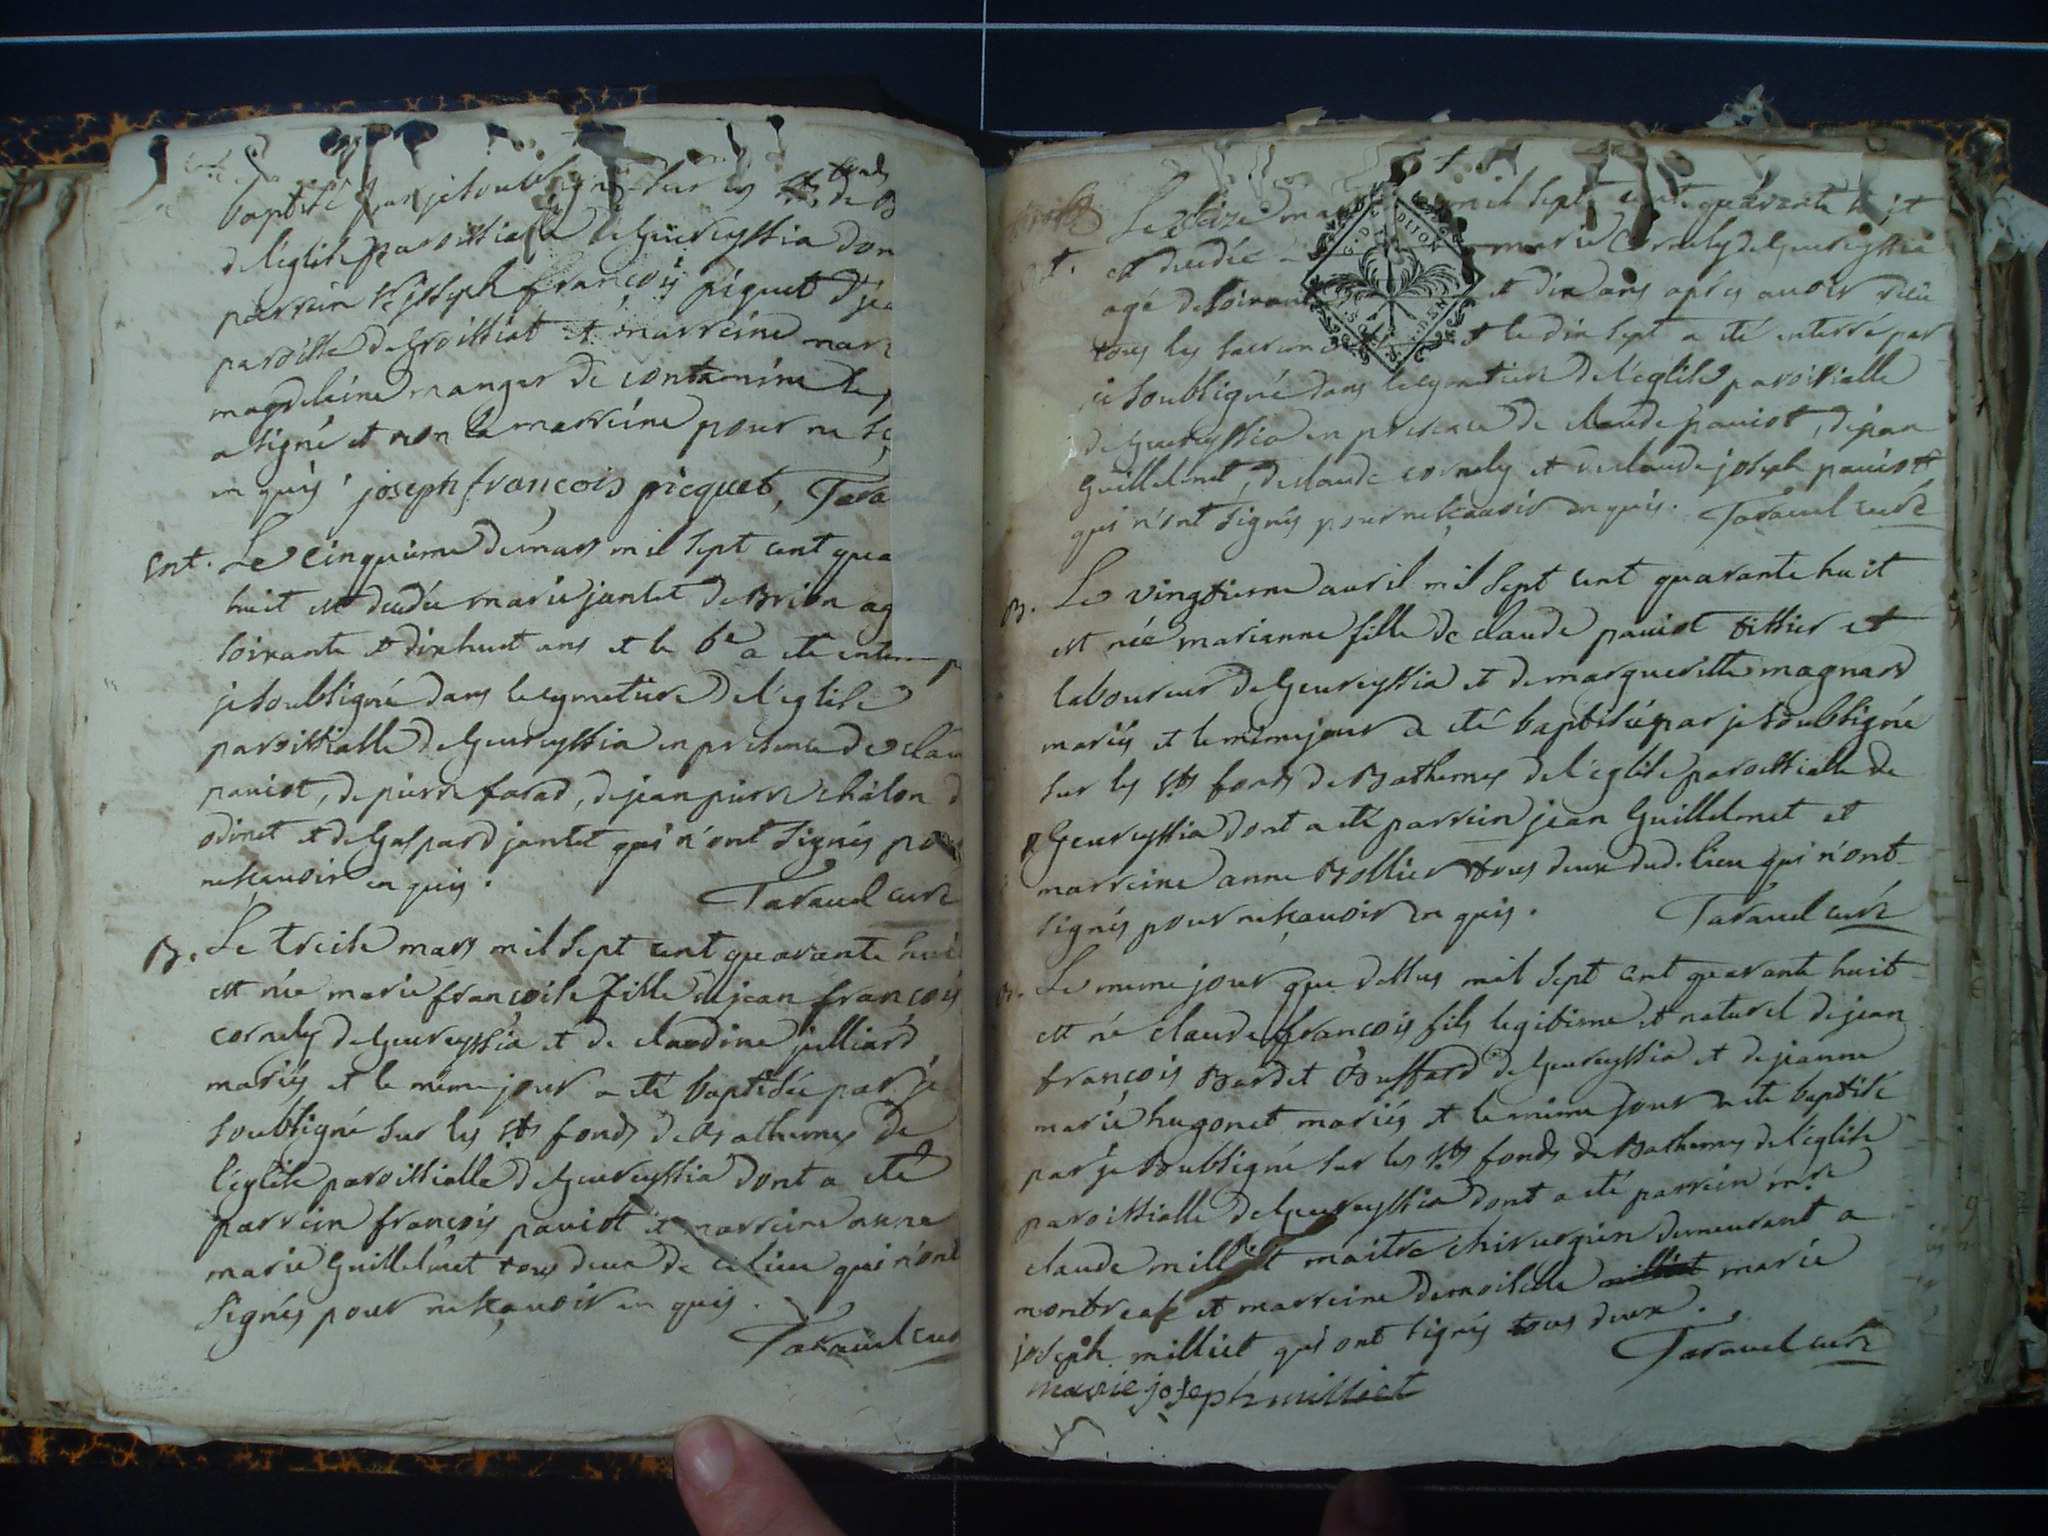 baptisé par je soubsigné sur les sts fonds de B
de l'eglise paroissialle de Geureyssia don
parrein sr joseph françois piquet de
paroisse de Groissiat et marreine mari
magdeleine manger de contamine le
a signé et non la marreine pour ne sç
en quis. joseph françois picquet, Tara
Ent. Le cinquieme de mars mil sept cent qua
huit est decedée marie jantet de Brion ag
soixante et dixhuit ans et le 6e a eté enter p
je soubsigné dans le cymetiere de l'eglise
paroissialle de Geureyssia en presence de clau
paviot, de pierre farad, de jean pierre chalon d
odinet et de Gaspard jantet qui n'ont signés pour
ne sçavoir en quis.
Taravel curé
B. Le treise mars mil sept cent quarante huit
est née marie françoise fille de jean françois
cornely de Geureyssia et de claudine julliard
mariés et le meme jour a eté baptisée par je
soubsigné sur les sts fonds de Bathemes de
l'eglise paroissialle de Geureyssia dont a eté
parrein françois paviot et marreine anne
marie Guillelmet tous deux de ce lieu qui n'ont
signés pour ne sçavoir en quis.
Taravel cur
Le seize mar mil sept cent quarante huit
est decedée marie cornely de Geureyssia
agé de soixant et dix ans après avoir reçu
tous les sacremen et le dix sept a eté enterré par
je soubsigné dans le cymetiere de l'eglise paroissialle
de Geureyssia en presence de claude paviot, de jean
Guillelmet, de claude cornely et de claude joseph paviot
qui n'ont signés pour ne sçavoir en quis. Taravel curé
G. DE DIJON
B. Le vingtieme avril mil sept cent quarante huit
est née marianne fille de claude paviot tissier et
laboureur de Geureyssia et de margueritte magnard
mariés et le meme jour a eté baptisée par je soubsigné
sur les sts fonds de Bathemes de l'eglise paroissialle de
Geureyssia dont a eté parrein jean Guillelmet et
marreine anne Bollier tous deux dud. lieu qui n'ont
signés pour ne sçavoir en quis.
Taravel curé
B. Le meme jour que dessus mil sept cent quarante huit
est né claude françois fils legitime et naturel de jean
françois Bardet Buffard de Geureyssia et de jeanne
marie hugonet mariés et le meme jour a eté baptisé
par je soubsigné sur les sts fonds de Bathemes de l'eglise
paroissialle de Geureyssia dont a eté parrein mre
claude milliet maitre chirurgien demeurant a
montreal et marreine demoiselle milliet marie
joseph milliet qui ont signés tous deux.
Taravel curé
marie joseph milliet